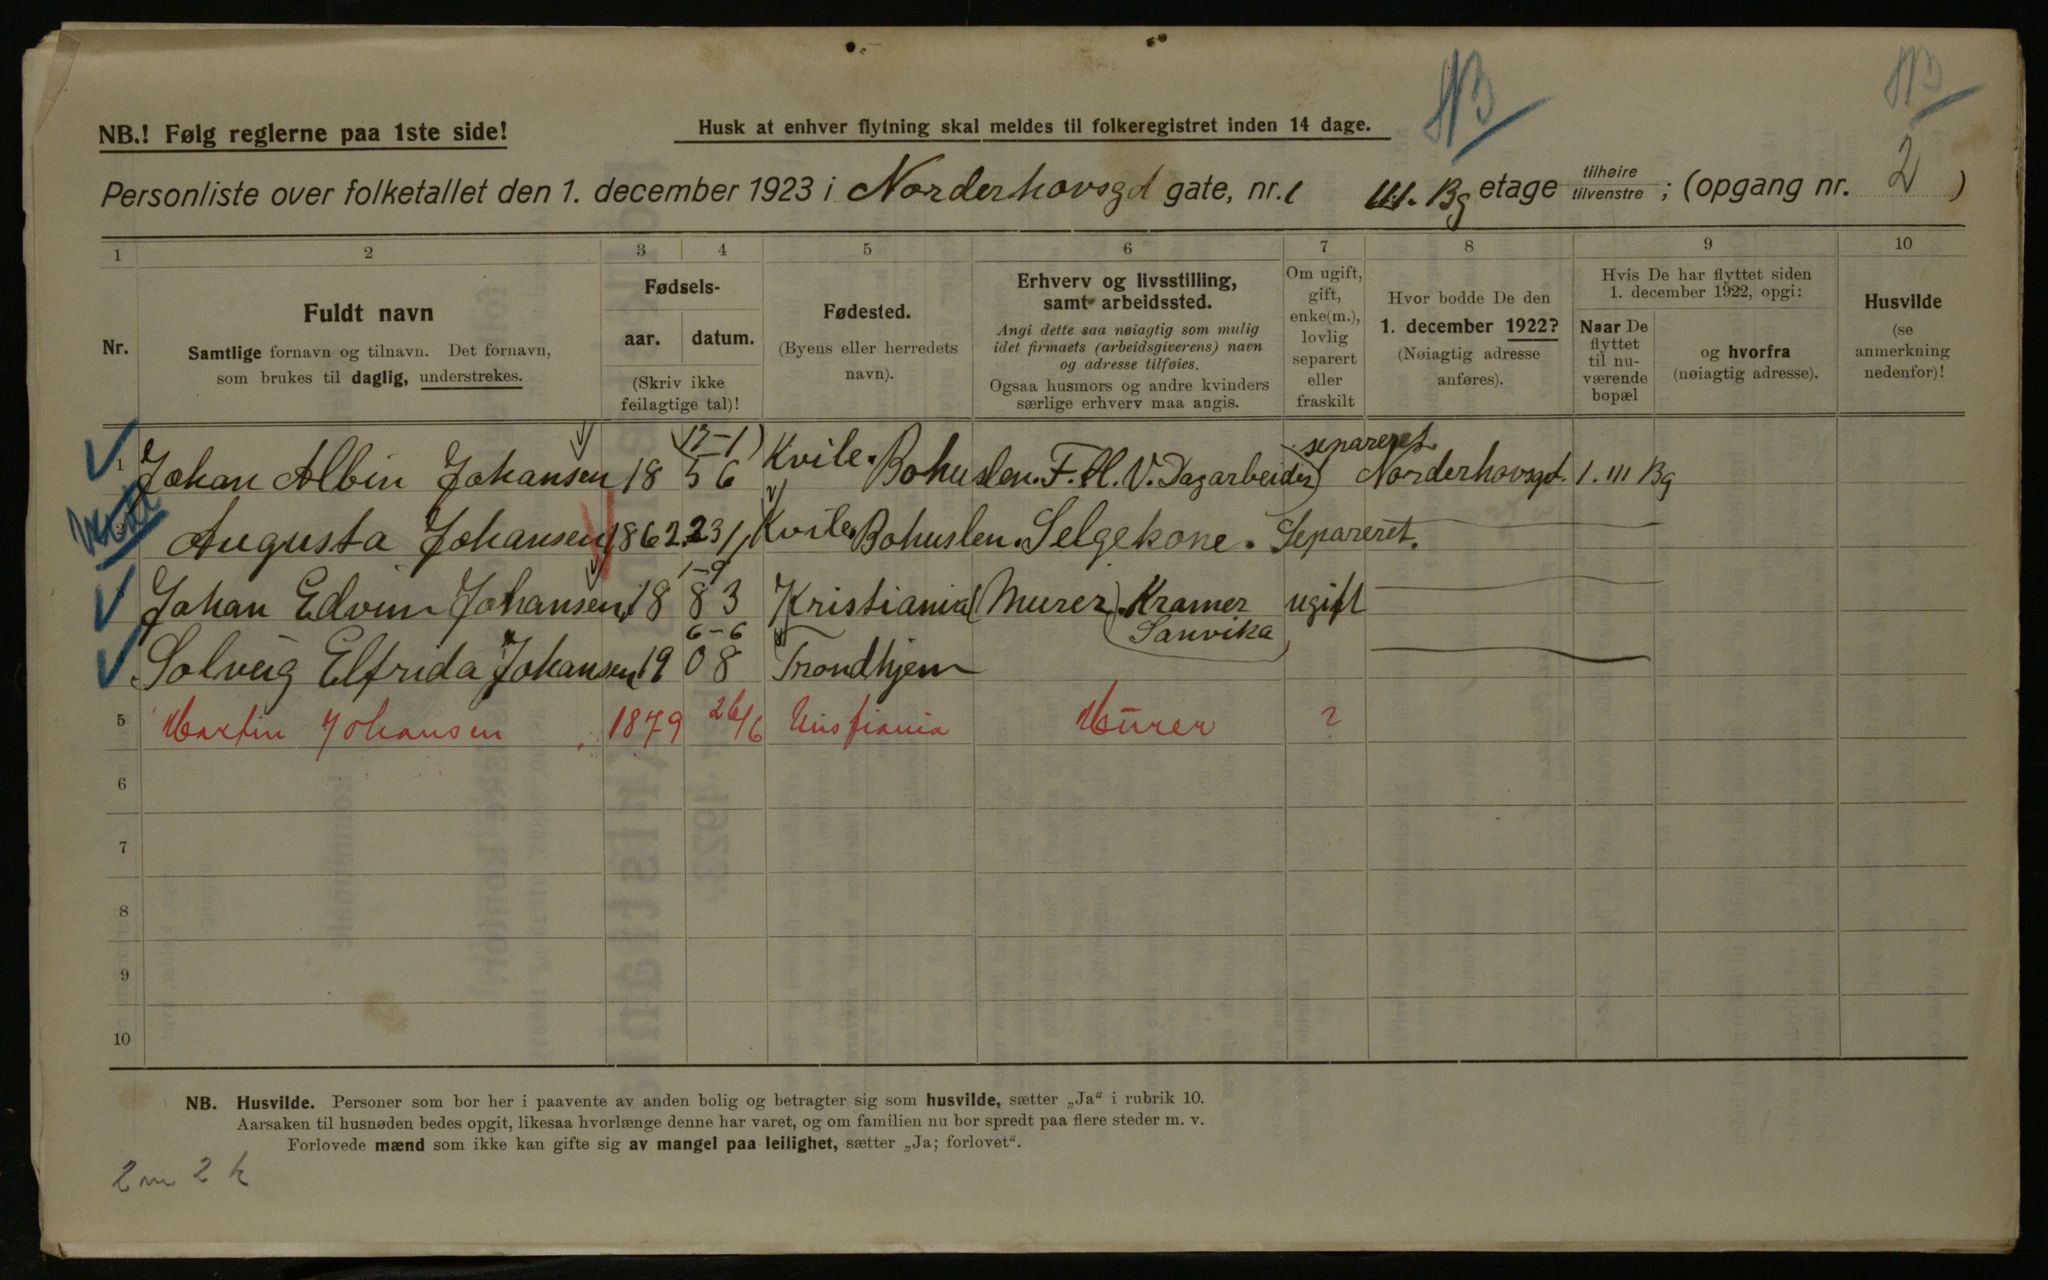 NB.! Følg reglerne paa 1ste side!
Husk at enhver flytning skal meldes til folkeregistret inden 14 dage.
NB
NB
Personliste over folketallet den 1. december 1923 i Norderhovsgd gate, nr. 1 III. Bg etage tilhøire tilvenstre ; (opgang nr. 2 )
1 2 3 4 5 6 7 8 9 10
Nr.
Fuldt navn
Samtlige fornavn og tilnavn. Det fornavn,
som brukes til daglig, understrekes.
Fødsels-
aar. datum.
(Skriv ikke
feilagtige tal)!
Fødested.
(Byens eller herredets
navn).
Erhverv og livsstilling,
samt arbeidssted.
Angi dette saa nøiagtig som mulig
idet firmaets (arbeidsgiverens) navn
og adresse tilføies.
Ogsaa husmors og andre kvinders
særlige erhverv maa angis.
Om ugift,
gift,
enke(m.),
lovlig
separert
eller
fraskilt
Hvor bodde De den
1. december 1922?
(Nøiagtig adresse
anføres).
Hvis De har flyttet siden
1. december 1922, opgi:
Naar De
flyttet
til nu-
værende
bopæl
og hvorfra
(nøiagtig adresse).
Husvilde
(se
anmerkning
nedenfor)!
1 Johan Albin Johansen 18 56 Kvile. Bohuslen. F.H.V. Dagarbeider separeret Norderhovsgd. 1. III Bg
2 Augusta Johansen 1862. 23/1 Kvile Bohuslen. Selgekone. Separeret.
1-9
Johan Edvin Johansen 18 83 Kristiania (Murer). Kramer ugift
Sanvika
6-6
Solveig Elfrida Johansen 19 08 Trondhjem
5 Martin Johansen 1879 26/6 Kristiania Murer ?
6
7
8
9
10
NB. Husvilde. Personer som bor her i paavente av anden bolig og betragter sig som husvilde, sætter „Ja“ i rubrik 10.
Aarsaken til husnøden bedes opgit, likesaa hvorlænge denne har varet, og om familien nu bor spredt paa flere steder m. v.
Forlovede mænd som ikke kan gifte sig av mangel paa leilighet, sætter „Ja; forlovet“.
2 m 2 k